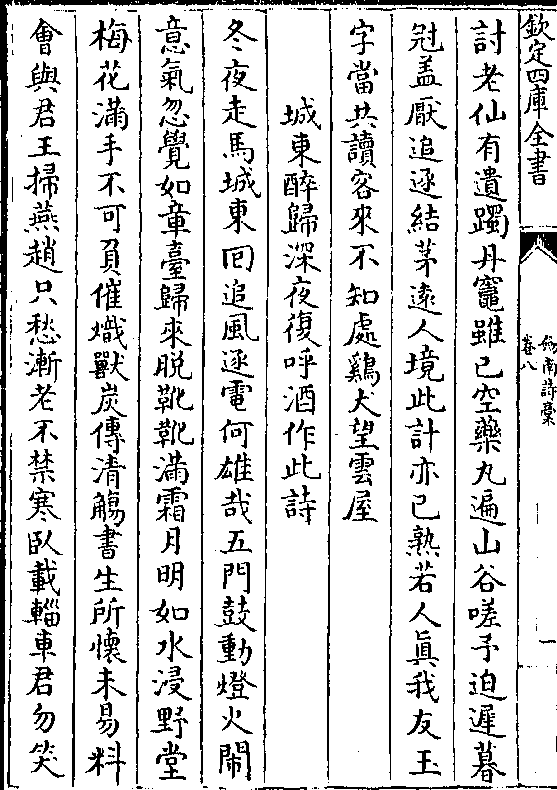 欽定四庫全書
劍南詩稾
卷八
一
討老仙有遺躅丹竈雖已空藥丸遍山谷嗟予迫遲暮
冠盖厭追逐結茅遠人境此計亦已熟若人眞我友玉
字當共讀客來不知處鷄犬望雲屋
城東醉歸深夜復呼酒作此詩
冬夜走馬城東回追風逐電何雄哉五門鼓動燈火鬧
意氣忽覺如章臺歸來脱靴靴滿霜月明如水浸野堂
梅花滿手不可負催熾獸炭傳清觴書生所懷未易料
會與君王掃燕趙只愁漸老不禁寒臥載輜車君勿笑